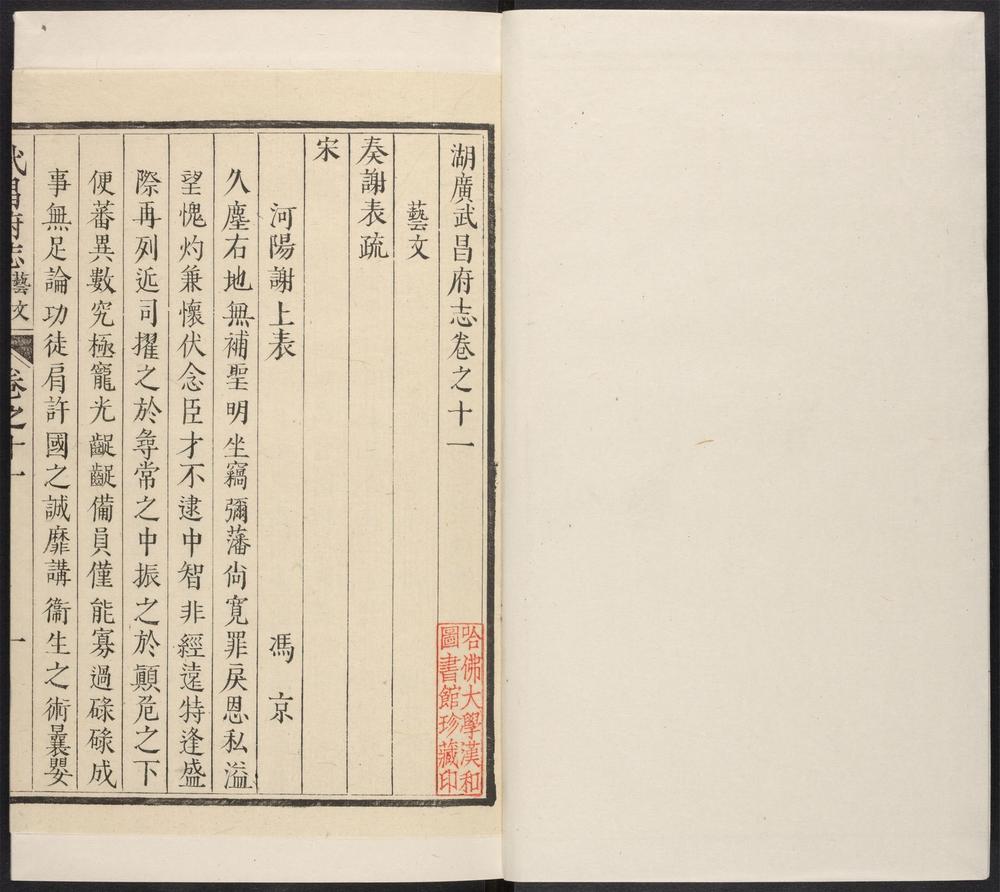 湖廣武昌府志卷之十一
藝文
奏謝表疏
宋
河陽謝上表 馮京
久塵右地無補聖明坐竊彌藩尙寛罪戾恩私溢
望愧灼兼懷伏念臣才不逮中智非經遠特逢盛
際再列近司擢之於尋常之中振之於顚危之下
便蕃異數究極寵光齪齪備員僅能寡過碌碌成
事無足論功徒肩許國之誠靡講衞生之術曩嬰
武昌府志 藝文 卷之十一 一
哈佛大學漢和
圖書館珍藏印